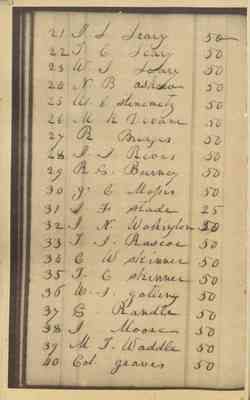 21 J L Seary 50
22 T C Seary 50
23 W J 50
24 N B askew 50
25 W C Stinemetz 50
26 M R Deane 50
27 R Burges 50
28 J J Reeves 50
29 R C Burney 50
30 J C Moses 50
31 J F Slade 25
32 J N Washington 50
33 T J Rascoe 50
34 C W Skinner 50
35 T C Skinner 50
36 W J 50
37 G Randle 50
38 J Moore 50
39 M T Waddle 50
40 Col. graves 50